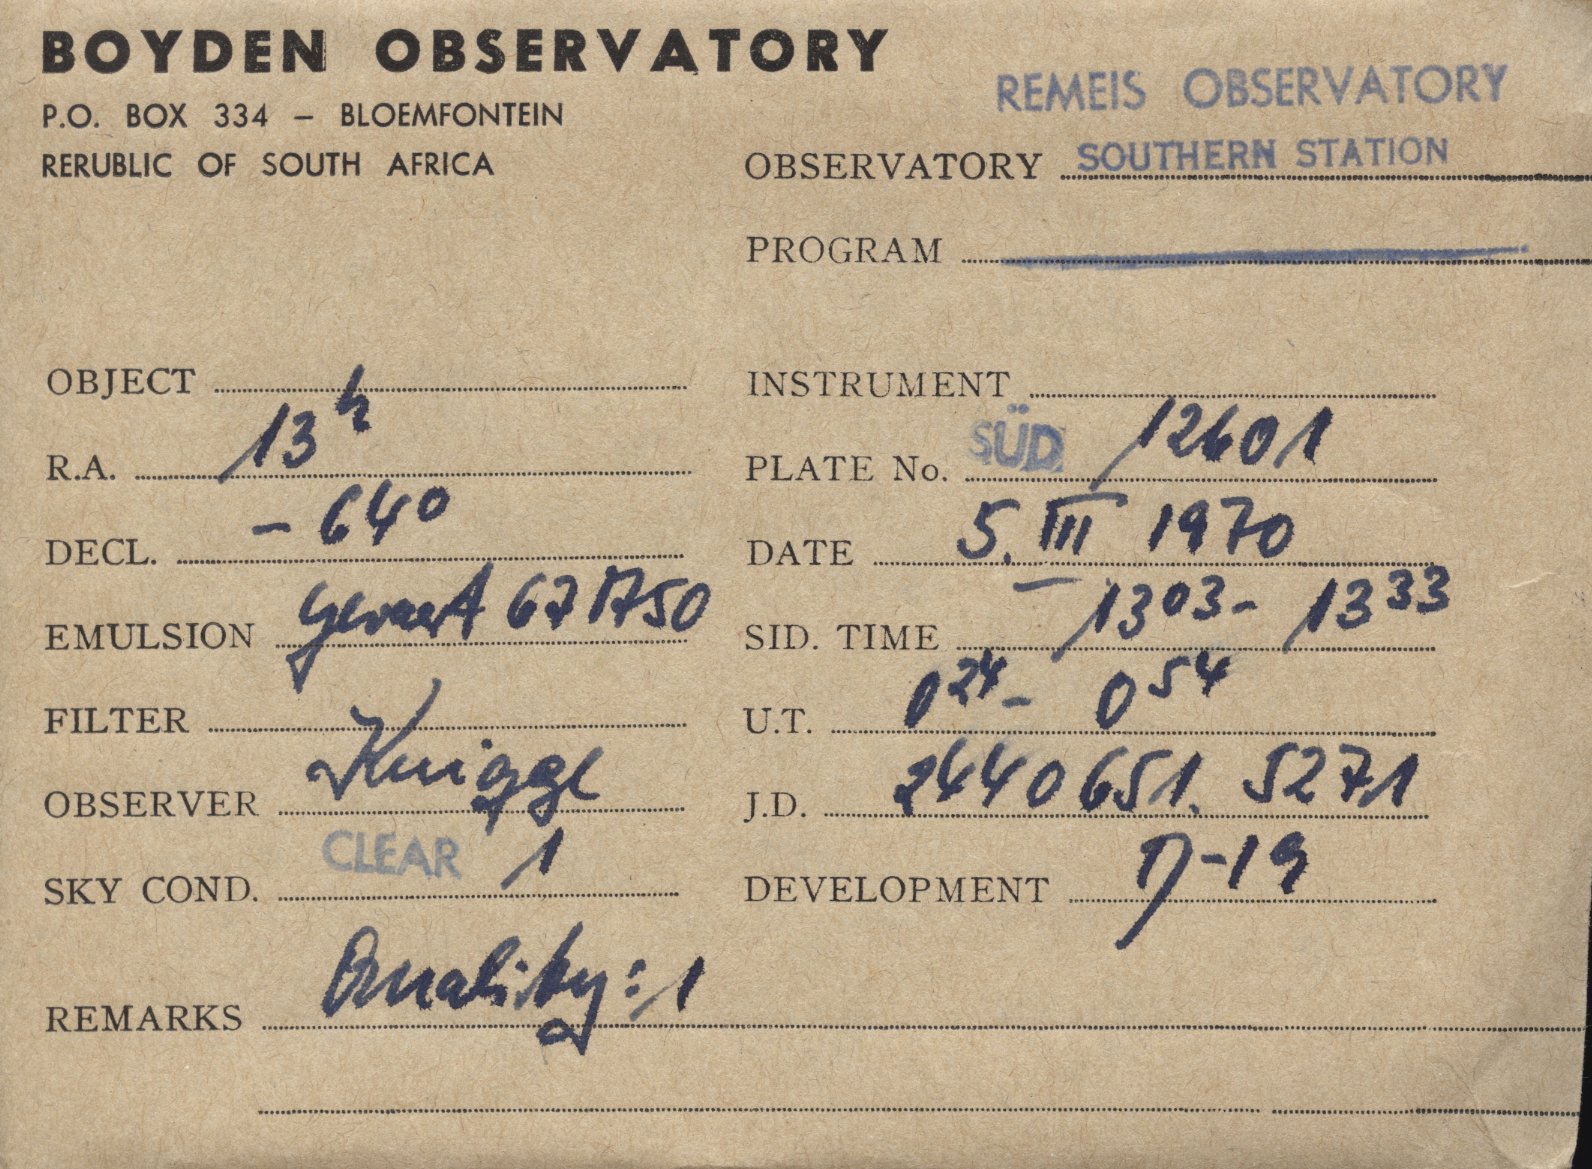 BOYDEN OBSERVATORY
P.O. BOX 334 – BLOEMFONTEIN
RERUBLIC OF SOUTH AFRICA
REMEIS OBSERVATORY
OBSERVATORY SOUTHERN STATION
PROGRAM
OBJECT
INSTRUMENT
R.A. 13h
PLATE No. SÜD 12601
DECL. – 64°
DATE 5. III 1970
EMULSION Gevaert 67 A 50
SID. TIME 13 03 – 13 33
FILTER
U.T. 0 24 – 0 54
OBSERVER Knigge
J.D. 2440651. 5271
SKY COND. CLEAR 1
DEVELOPMENT D-19
REMARKS Quality: 1